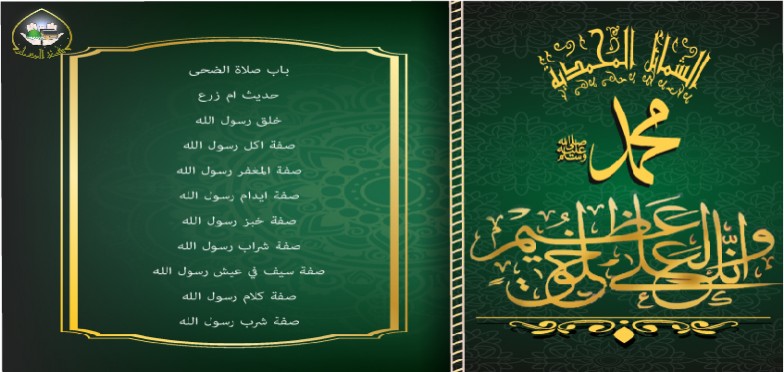 الشمائل المحمدية
محمد
صلى الله عليه وسلم
وإنك لعلى خلق عظيم
باب صلاة الضحى
حديث ام زرع
خلق رسول الله
صفة اكل رسول الله
صفة المغفر رسول الله
صفة ايدام رسول الله
صفة خبز رسول الله
صفة شراب رسول الله
صفة سيف في عيش رسول الله
صفة كلام رسول الله
صفة شرب رسول الله